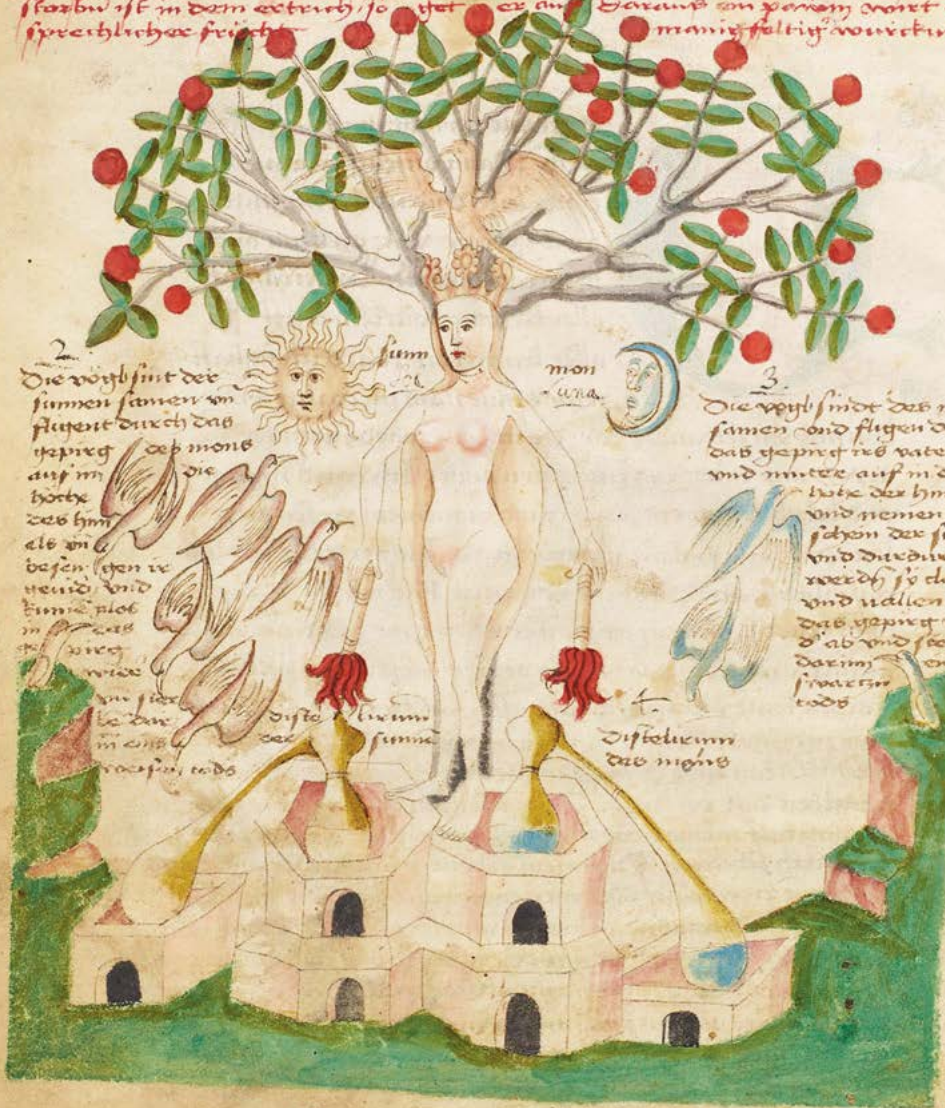 storbn ist in dem ertrich, so get er auf daraus ein
sprechlicher frücht manigfeltig würckū
sunn
mon
luna
2
Die vögl sint der
sunnen samen vn
fligent durch das
gepirg des mons
auf in die
höche
des him
els vn
besen gen ir
gevid, vnd
kume plos
in das
ge pirg
wider
vn ster
be dar
in eins
weisen tods
3
Die vögl sindt des
samen vnd fligen d
das gepirg irs vate
vnd muter auf in d
höhe der him
vnd nemen
schein der s
vnd dardur
werdn sy cl
vnd vallen
das gepirg
d' ab vnd ste
darinn
swartzn
tods
distelirum
der sunne
4
Distelirum
des mons